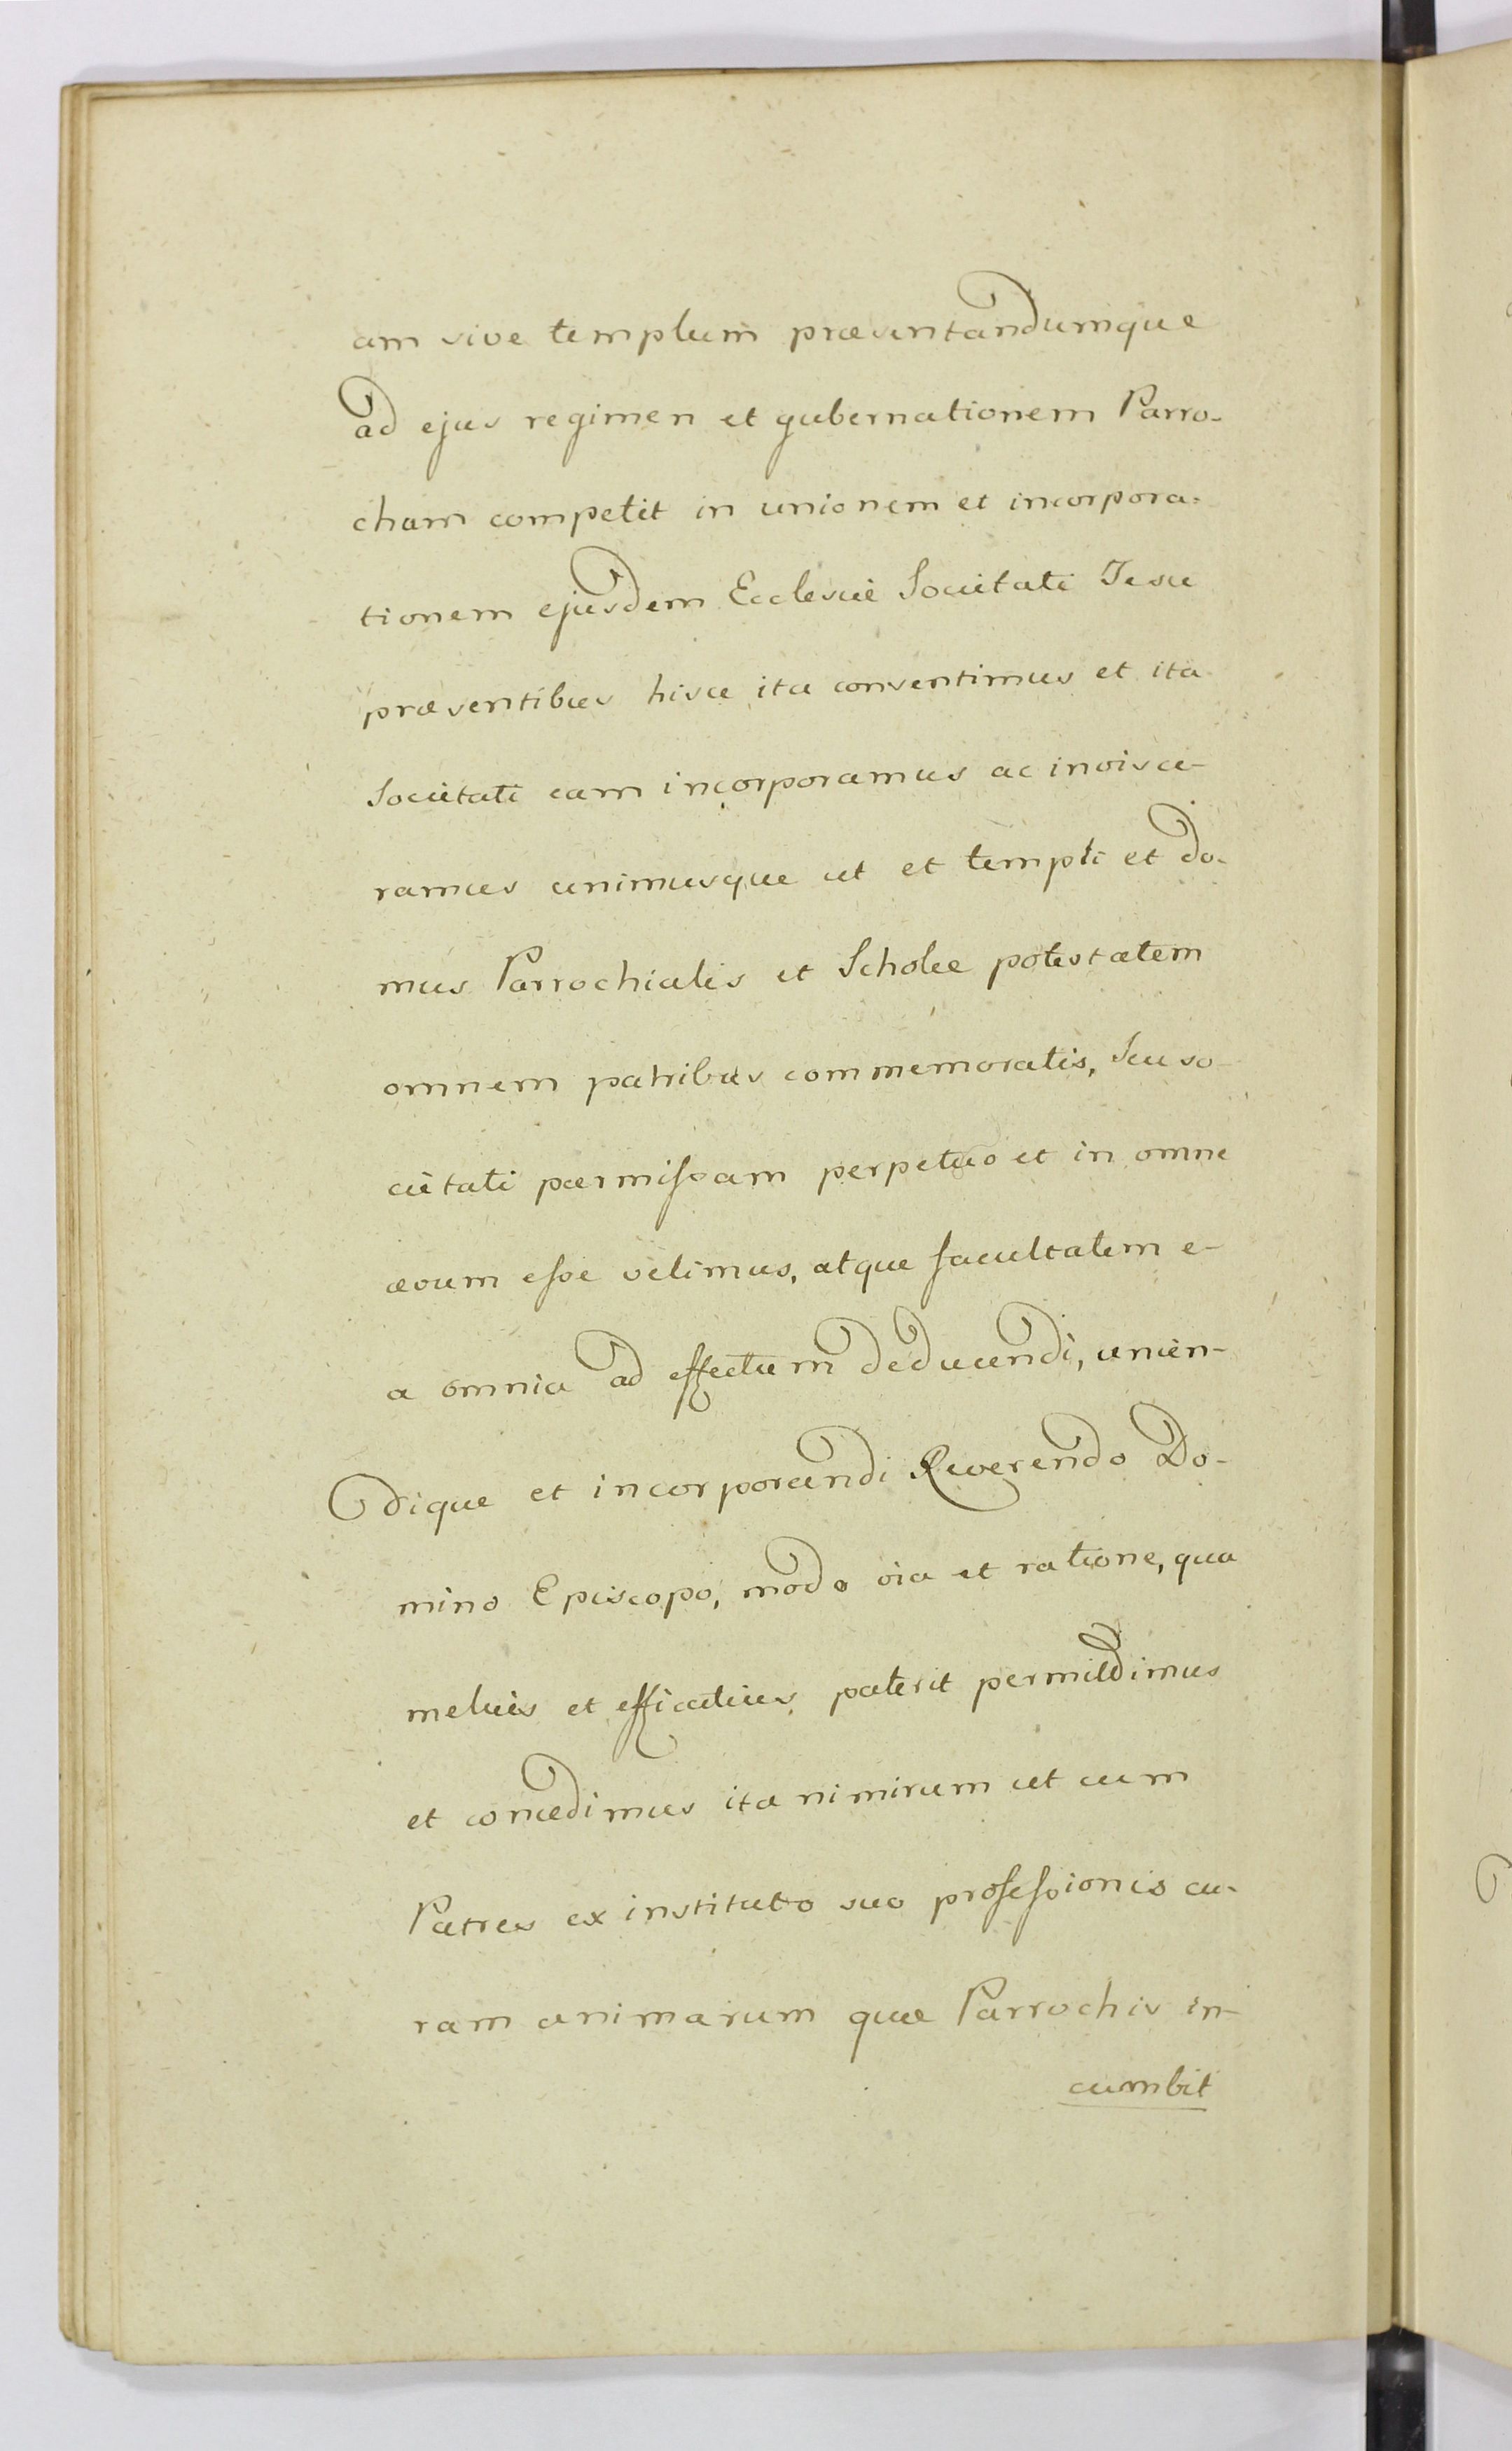 am sive templum præsentandumque
ad ejus regimen et gubernationem Parro-
cham competit in unionem et incorpora-
tionem ejusdem Ecclesiæ Societati Jesu
præsentibus hisce ita consentimus et ita
Societati eam incorporamus ac invisce-
ramus unimusque ut et templi et do-
mus Parrochialis et Scholæ potestatem
omnem patribus commemoratis, seu so-
cietati permissam perpetuo et in omne
ævum esse velimus, atque facultatem e-
a omnia ad effectum deducendi, unien-
dique et incorporandi Reverendo Do-
mino Episcopo, modo via et ratione, qua
melius et efficatius paterit permittimus
et concedimus ita nimirum ut cum
Patres ex instituto suo professionis cu-
ram animarum quæ Parrochis in-
cumbit